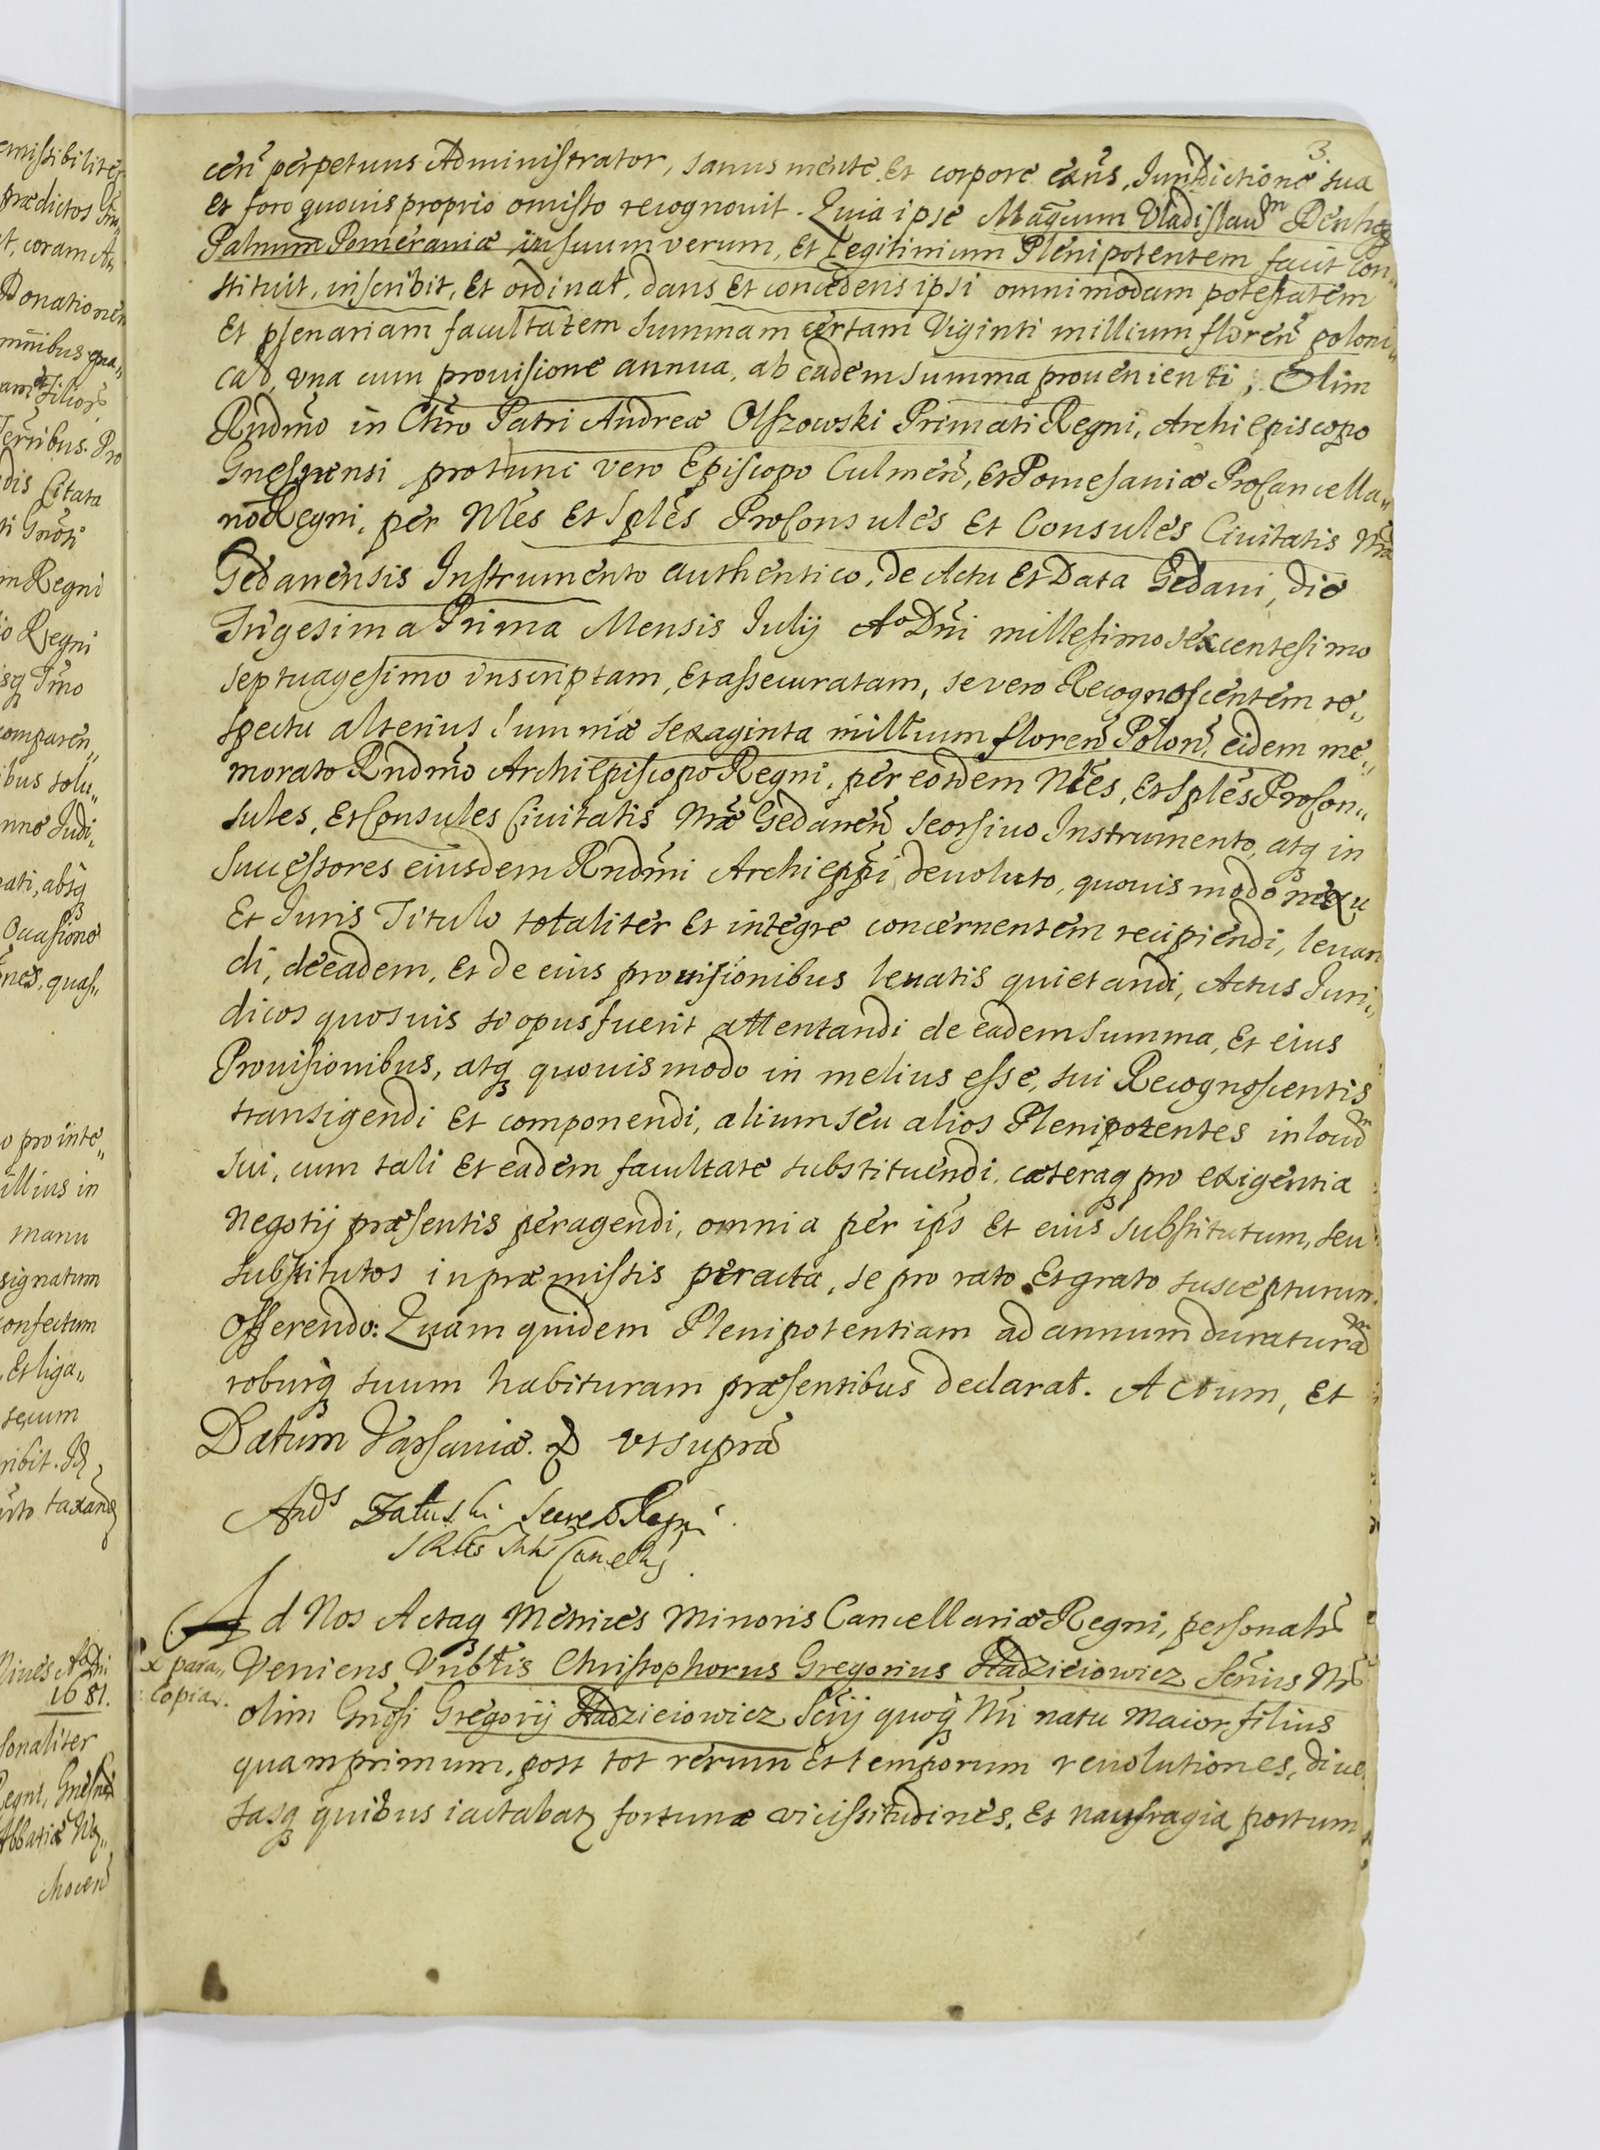 3.
ceñ perpetuus Administrator, sanus mente et corpore exñs, Iurisdictione sua
et foro quovis proprio omisso recognovit. Quia ipse Magcum Vladislaum Denhof
Palnum Pomeraniæ in suum verum, et Legitimum Plenipotentem facit con„
stituit, inscribit, et ordinat, dans et concedens ipsi omnimodam potestatem
et plenariam facultatem Summam certam Viginti millium floreñ poloni„
cal, una cum provisione annua, ab eadem summa provenienti, Olim
Rndmo in Chro Patri Andreæ Olszowski Primati Regni, Archiepiscopo
Gnesnensi protunc vero Episcopo Culmeñ, et Pomesaniæ Procancella„
rio Regni, per Nles et Sples Proconsules et Consules Civitatis Nræ
Gedanensis Instrumento authentico, de Actu et Data Gedani, die
Trigesima Prima Mensis Iulij Ao Dni millesimo sexcentesimo
septuagesimo inscriptam, et assecuratam, se vero Recognoscentem re„
spectu alterius Summæ sexaginta millium floreñ Poloñ, eidem me„
morato Rndmo Archiepiscopo Regni, per eosdem Nles, et Sples Procon„
sules, et Consules Civitatis Nræ Gedaneñ seorsivo Instrumento, atq in
Successores eiusdem Rndmi Archieppi devoluto, quovis modo nexu
et Iuris Titulo totaliter et integre concernentem recipiendi, levan
di, de eadem, et de eius provisionibus levatis quietandi, Actus Iuri„
dicos quosvis si opus fuerit attentandi de eadem summa, et eius
Provisionibus, atq quovis modo in melius esse, sui Recognoscentis
transigendi et componendi, alium seu alios Plenipotentes in locum
sui, cum tali et eadem facultate substituendi, cæteraq pro exigentia
negotij præsentis peragendi, omnia per ips et eius substitutum, seu
substitutos in præmissis peracta, se pro rato et grato suscepturum
offerendo: Quam quidem Plenipotentiam ad annum duraturam
roburq suum habituram præsentibus declarat. Actum, et
Datum Varsaviæ. ut supra
Ands Załuski Secres Regni
Cancellæ
Ad Nos Actaq Metrices Minoris Cancellariæ Regni, personalr
Veniens Nrbtis Christophorus Gregorius Hadziewicz Servus Nr
olim Gnosi Gregorij Hadziewicz Servij quoq Nri natu Maior filius
quamprimum, post tot rerum et temporum revolutiones, diver
sasq quibus iactabatz fortunæ vicissitudines, et naufragia portum
x para„
Copia.
prædictos
t, coram
Donationem
omnibus
filios
Citata
m Regni
io Regni
comparen„
ibus solu„
nno Iudi„
ati, absq
Ocasione
nes, quas„
o pro inte„
illius in
manu
signatum
onfectum
Et liga„
secum
ribit. Id
taxand
1681.
sonaliter
Regni, Gnesnen
Abbatiæ Wą„
choceñ